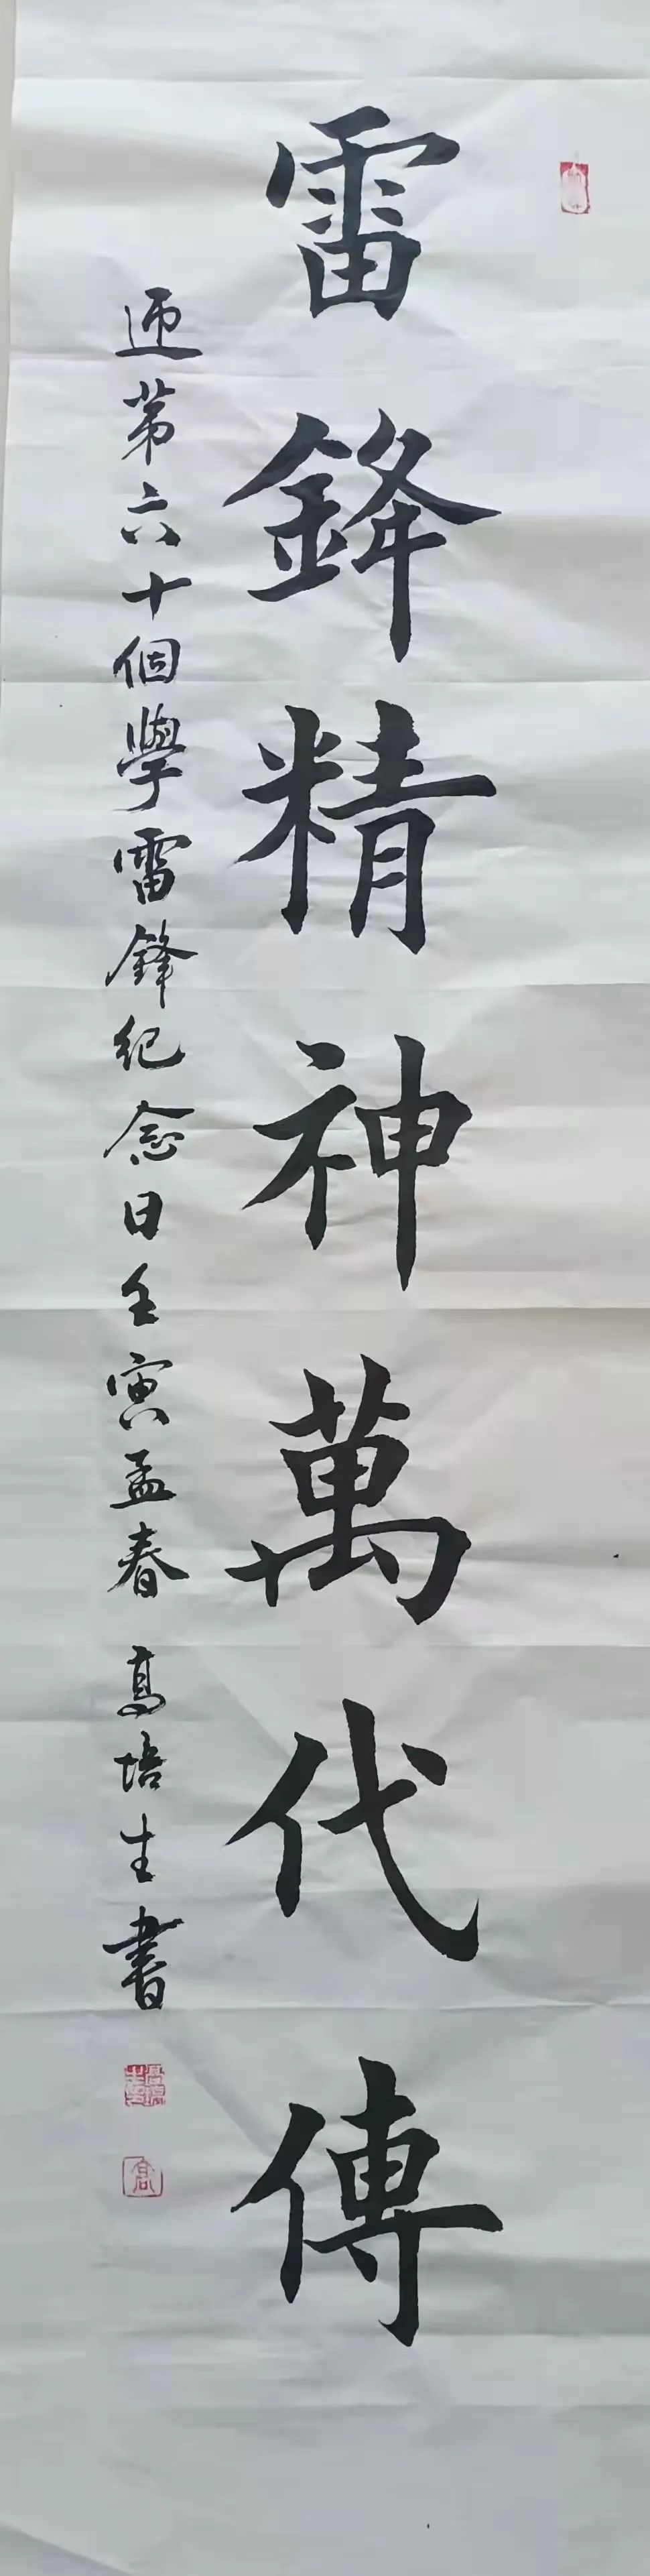 雷鋒精神萬代傳
迎第六十個學雷鋒紀念日壬寅孟春 高培生書
高